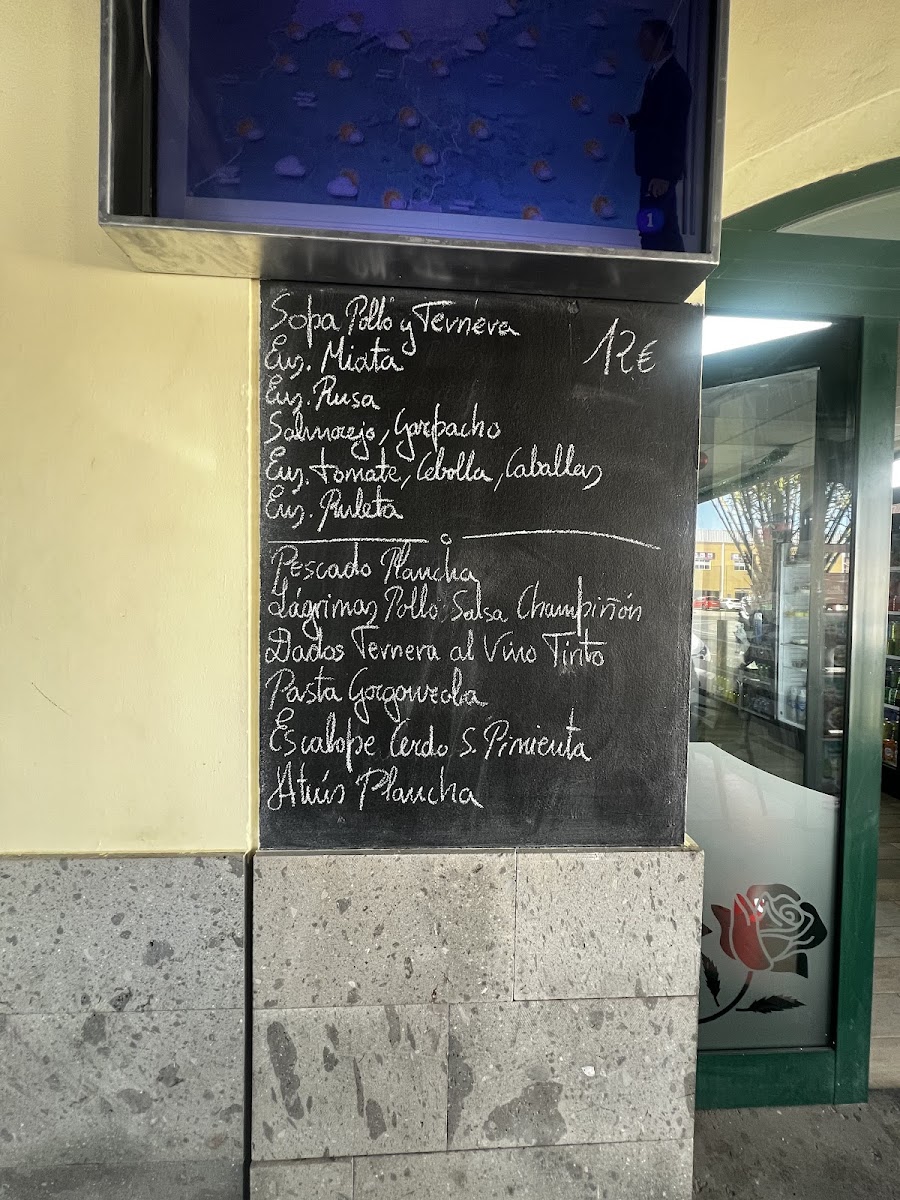 1
Sopa Pollo y Ternera
12€
Ens. Mixta
Ens. Rusa
Salmorejo, Gazpacho
Ens. tomate, Cebolla, Caballas
Ens. Ruleta
Pescado Plancha
Lágrimas Pollo Salsa Champiñón
Dados Ternera al Vino Tinto
Pasta Gorgonzola
Escalope Cerdo S. Pimienta
Atún Plancha